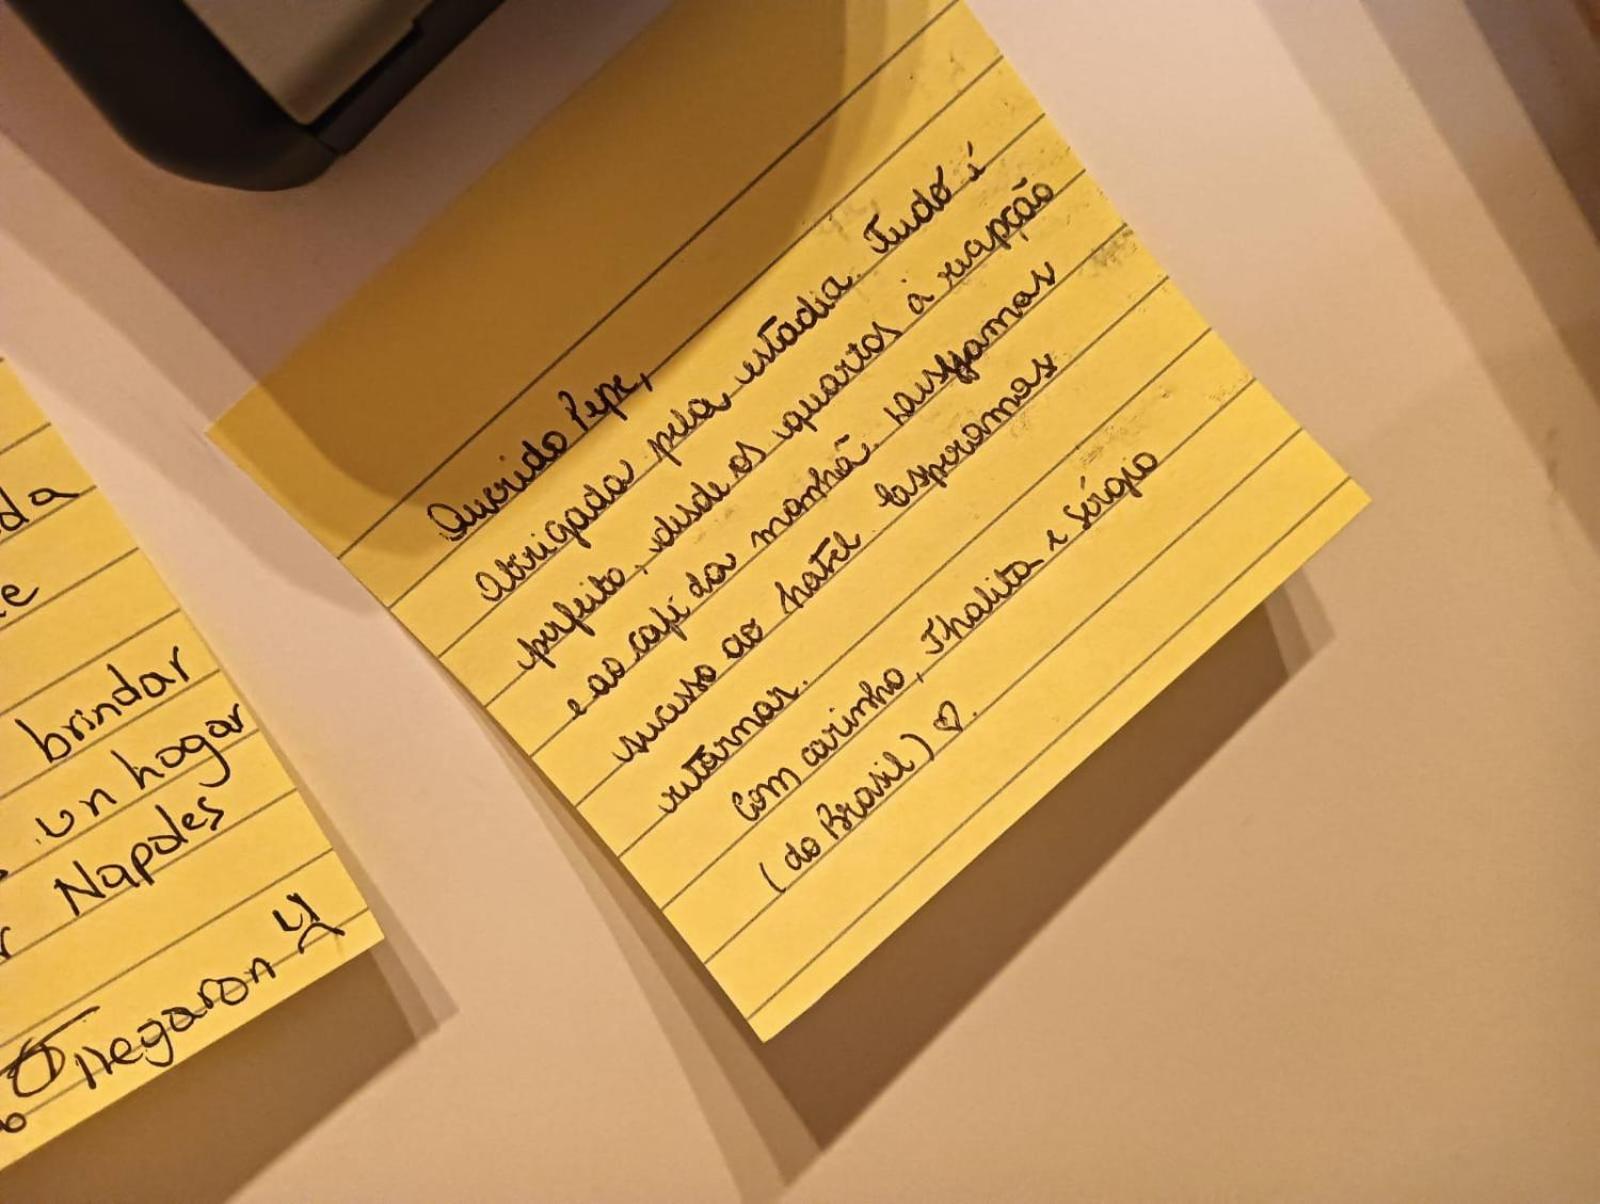 Querido Pepe,
Obrigada pela estadia. Tudo é
perfeito, desde os quartos à recepção
e ao café da manhã. Desejamos
sucesso ao hotel. Esperamos
retornar.
Com carinho, Thalita e Sérgio
(do Brasil) ♡.
brindar
un hogar
Napoles